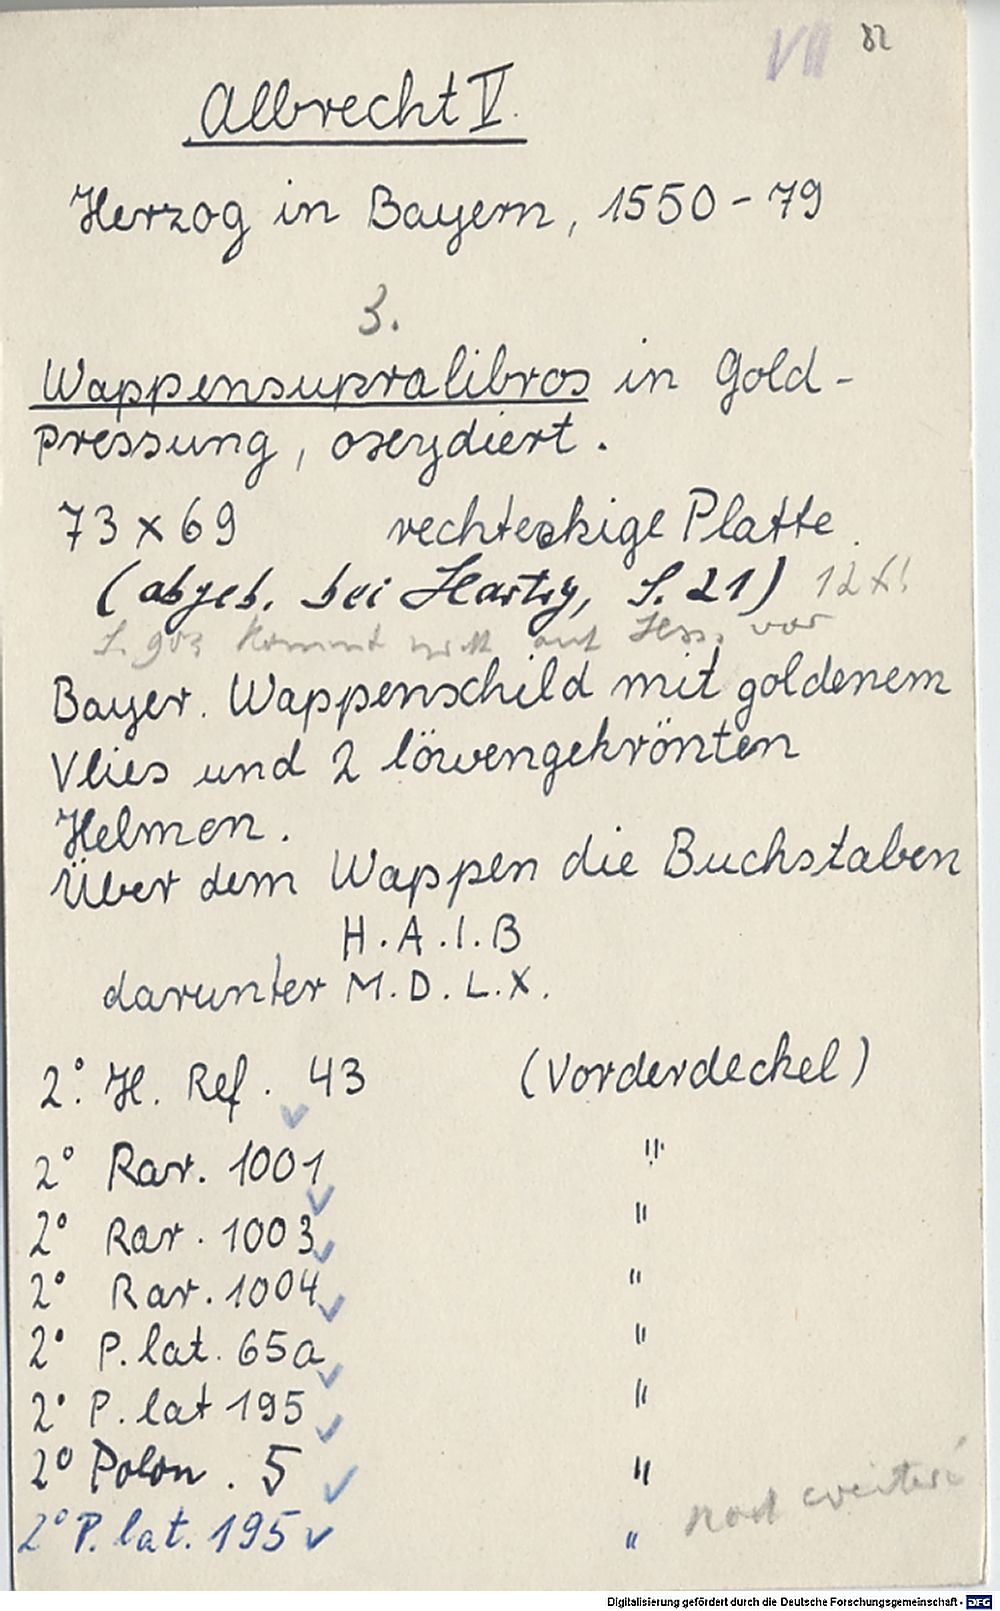 VII 82
Albrecht V.
Herzog in Bayern, 1550-79
3.
Wappensupralibros in Gold-
pressung, oxydiert.
73 x 69 rechteckige Platte
(abgeb. bei Hartig, S. 21) 12 x!
kommt nicht auf Hss. vor
Bayer. Wappenschild mit goldenem
Vlies und 2 löwengekrönten
Helmen.
Über dem Wappen die Buchstaben
H.A.I.B
darunter M.D.L.X.
2°. H. Ref. 43 (Vorderdeckel)
2° Rar. 1001 "
2° Rar. 1003 "
2° Rar. 1004 "
2° P. lat. 65a "
2° P. lat 195 "
2° Polon. 5 "
noch weitere
2° P. lat. 195 "
Digitalisierung gefördert durch die Deutsche Forschungsgemeinschaft - DFG